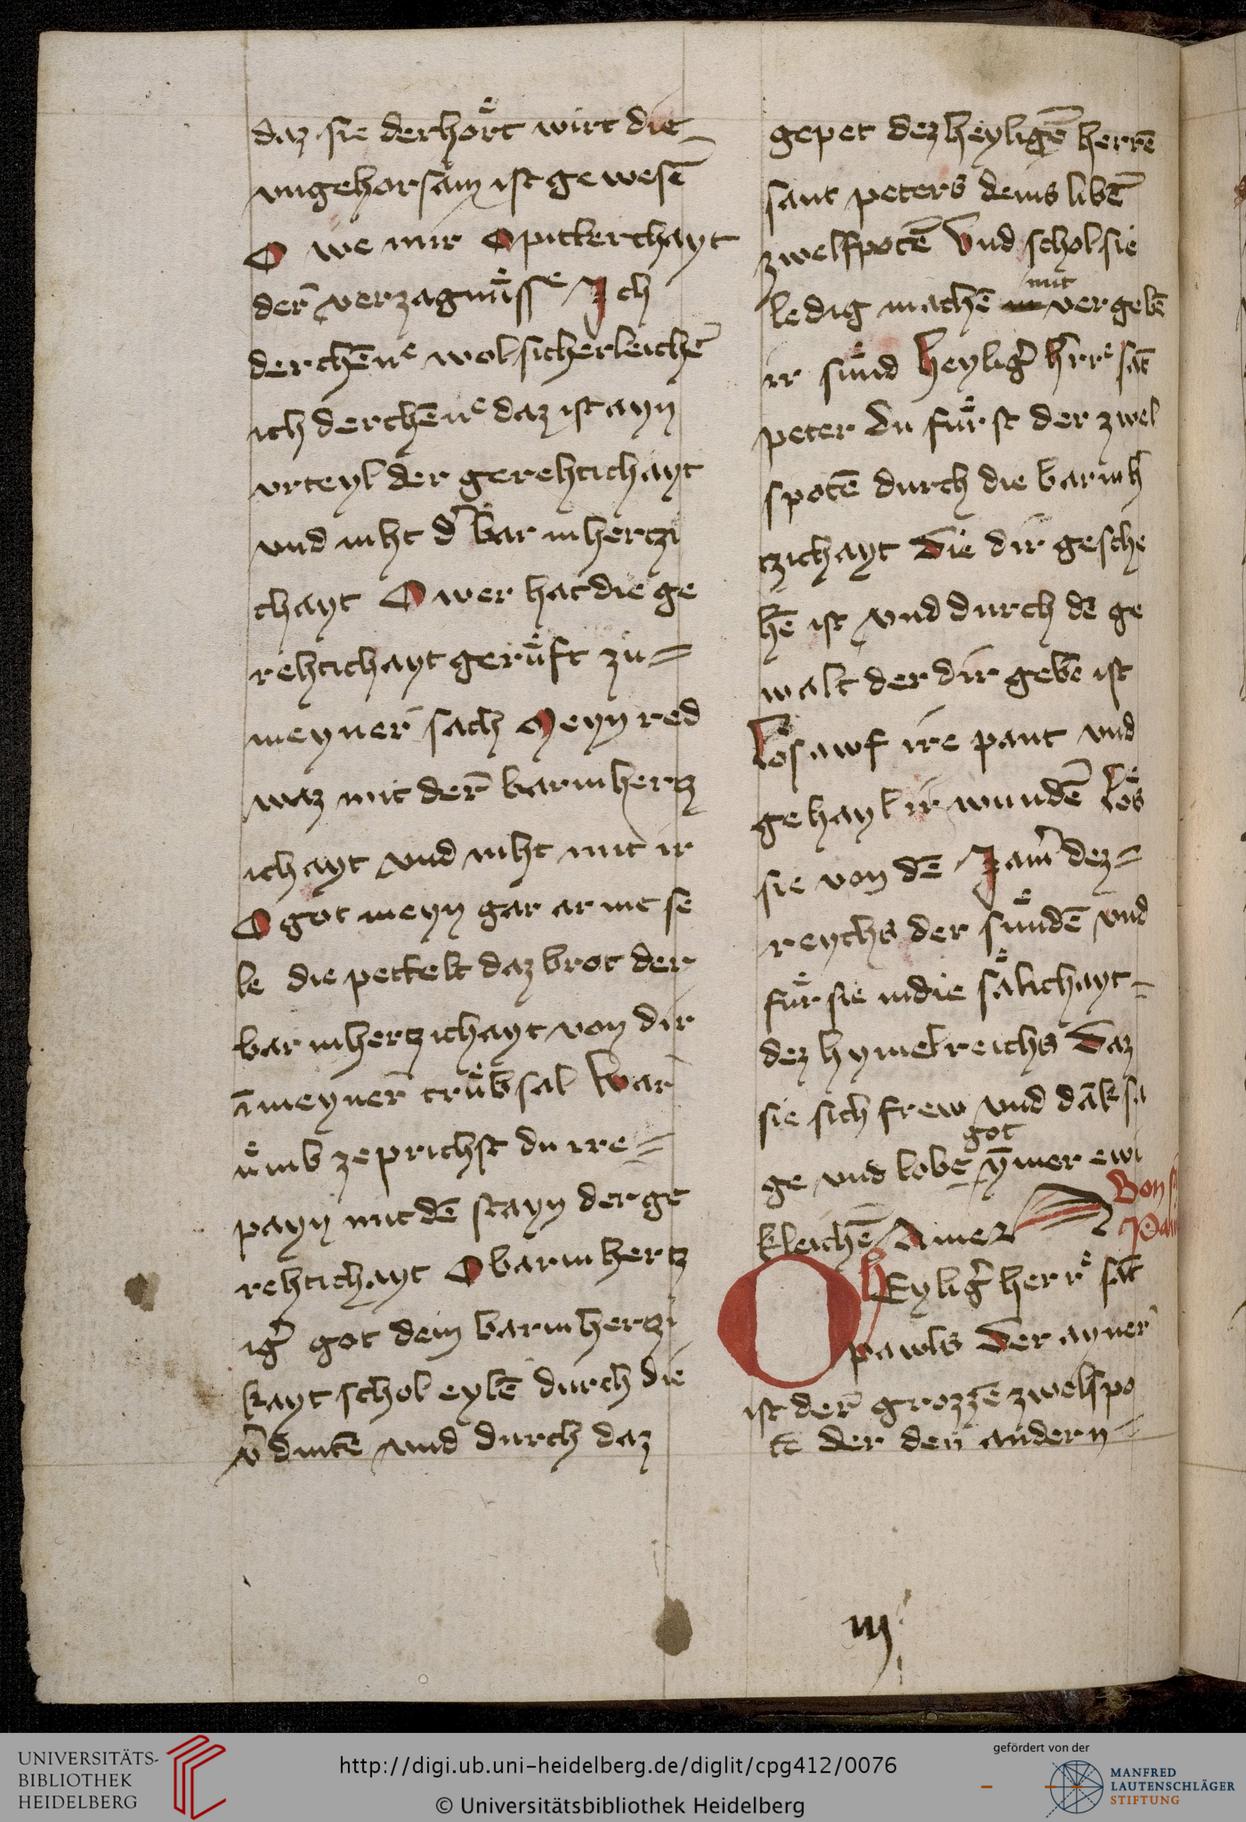 daz sie derhoͤrt wirt die
vngehorsam ist gewesē
O we mir O pitterchayt
der̄ verzagnuͤsse Ich
derchēne wol sicherleichē
ich derchēne daz ist ayn
vrteyl der gerehtichayt
vnd niht d͛ barmhertzi
chayt O wer hat die ge
rehtichayt geruͤft zu=
meyner̄ sach Meyn red
waz mit der̄ barmhertz
ichayt vnd niht mit ir
O got meyn gar arme se
le die pettelt daz brot der
barmhertzichayt von dir
ī meyner̄ truͤbsal War
uͤmb zeprichst du ire=
payn mit dē stayn der ge
rehtichayt O barmhertz
ig͛ got dein barmhertzi
kayt schol eylē durch die
v͛dinte vnd durch daz
gepet dez heyligē herrē
sant peters deins libē
zwelfpotē Vnd schol sie
ledig machē mit vergebē
ir suͤnd Heylig͛ h͛rre sāt
peter du fuͤrst der zwel
fpotē durch die barmh͛
tzichayt Die dir gesche
hē ist vnd durch dē ge
walt der dir gebē ist
Loͤs awf ire pant vnd
gehayl ir wundē Loͤs
sie von dē Jam͛ dez=
reychs der suͤndē vnd
fuͤr sie in die saͤlichayt=
dez hymelreichs Daz
sie sich frew vnd dāk sa
ge vnd lobe got ȳmer ewi
kleichē Amen
Von s
Pau
O Heylig͛ herre sāt
pawls Der ayner
ist der̄ grozzē zwelfpo
tē der den andern=
iij
UNIVERSITÄTS-
BIBLIOTHEK
HEIDELBERG
http://digi.ub.uni-heidelberg.de/diglit/cpg412/0076
© Universitätsbibliothek Heidelberg
gefördert von der
MANFRED
LAUTENSCHLÄGER
STIFTUNG